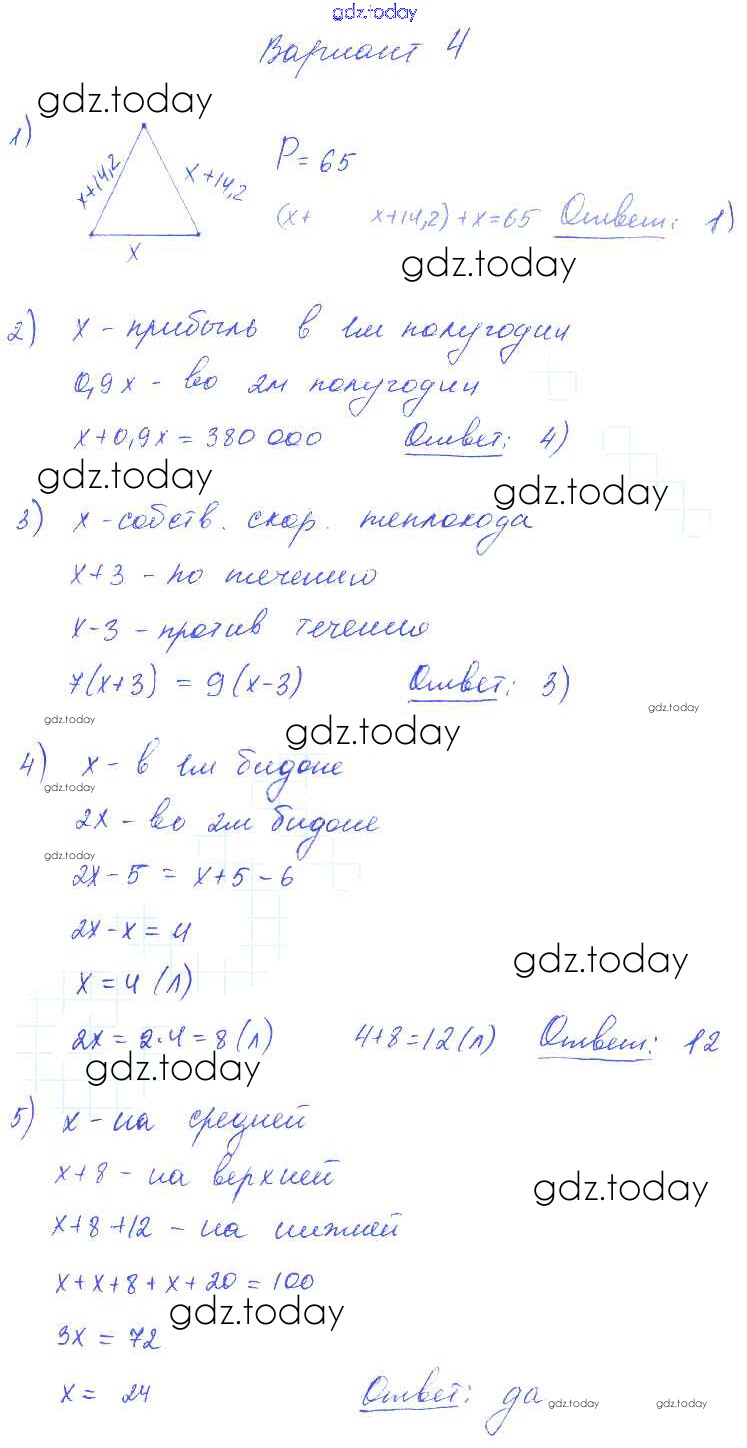 gdz.today
Вариант 4
gdz.today
1)
x+14,2
x+14,2
x
P=65
(x+ x+14,2)+x=65 Ответ: 1)
gdz.today
2) x - прибыль в 1м полугодии
0,9x - во 2м полугодии
x+0,9x = 380 000 Ответ: 4)
gdz.today
gdz.today
3) x - собств. скор. теплохода
x+3 - по течению
x-3 - против течения
7(x+3) = 9(x-3) Ответ: 3)
gdz.today
gdz.today
gdz.today
4) x - в 1м бидоне
gdz.today
2x - во 2м бидоне
gdz.today
2x-5 = x+5-6
2x-x=4
gdz.today
x=4 (л)
2x = 2·4=8(л) 4+8=12(л) Ответ: 12
gdz.today
5) x - на средней
x+8 - на верхней
gdz.today
x+8+12 - на нижней
x+x+8+x+20=100
gdz.today
3x = 72
x = 24 Ответ: да
gdz.today
gdz.today